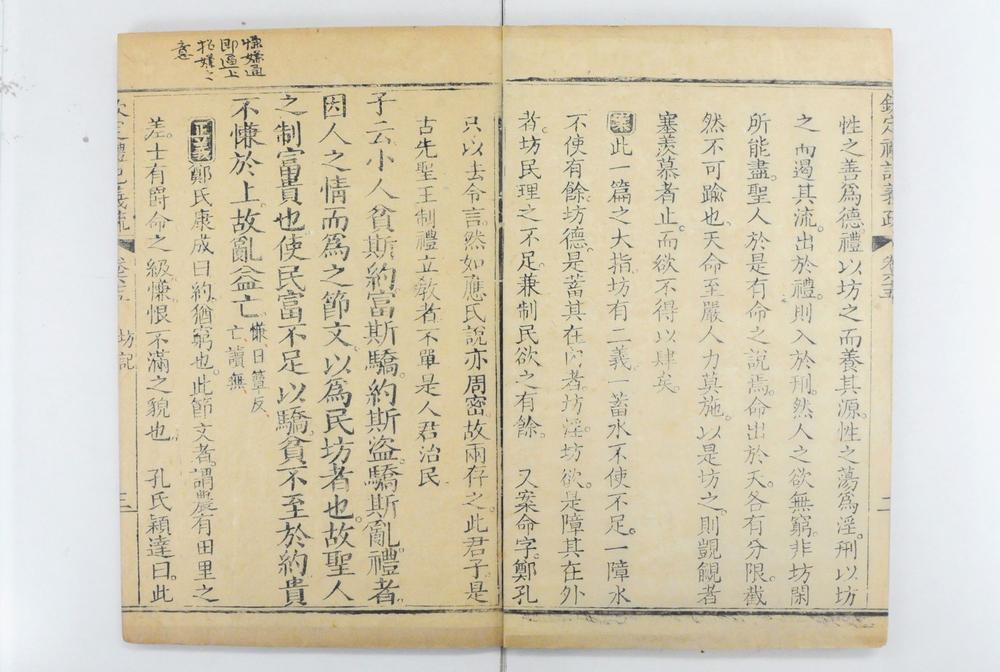 欽定禮記義疏 卷六十五 二
性之善爲德禮以坊之而養其源性之蕩爲淫刑以坊
之而遏其流出於禮則入於刑然人之欲無窮非坊閑
所能盡聖人於是有命之說焉命出於天各有分限截
然不可踰也天命至嚴人力莫施以是坊之則覬覦者
塞羨慕者止而欲不得以肆矣
案此一篇之大指坊有二義一蓄水不使不足一障水
不使有餘坊德是蓄其在内者坊淫坊欲是障其在外
者坊民理之不足兼制民欲之有餘 又案命字鄭孔
只以去令言然如應氏說亦周密故兩存之此君子是
古先聖王制禮立教者不單是人君治民
子云小人貧斯約富斯驕約斯盜驕斯亂禮者
因人之情而爲之節文以爲民坊者也故聖人
之制富貴也使民富不足以驕貧不至於約貴
不慊於上故亂益亡
慊日簟反
亡讀無
正義鄭氏康成曰約猶窮也此節文者謂農有田里之
差士有爵命之級慊恨不滿之貌也 孔氏穎達曰此
欽定禮記義疏 卷六十五 坊記 三
慊嫌通
即逼上
招嫌之
意